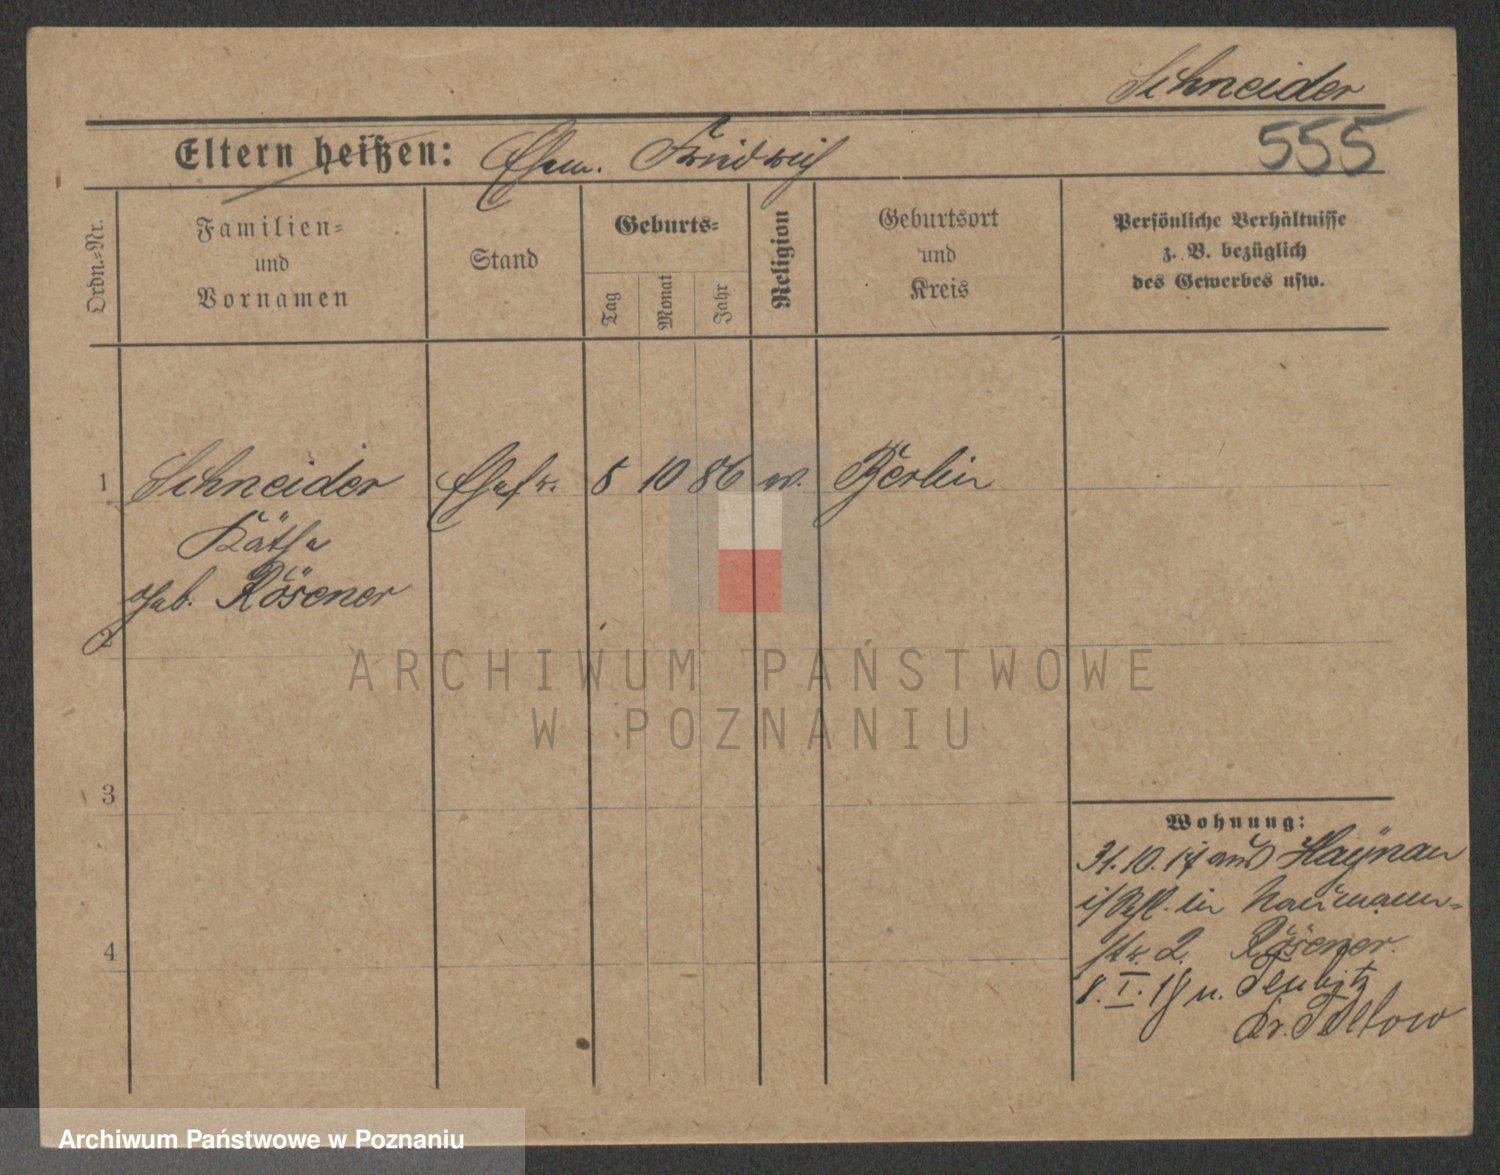 Schneider
555
Eltern heißen: Ehem. Friedrich
Ordn.-Nr.
Familien-
und
Vornamen
Stand
Geburts-
Tag
Monat
Jahr
Religion
Geburtsort
und
Kreis
Persönliche Verhältnisse
z. B. bezüglich
des Gewerbes usw.
1 Schneider Ehefr. 8 10 86 ev. Berlin
Käthe
geb. Rösener
2
3
4
Wohnung:
31.10.17 aus Haynau
in Naumann-
str. 2. Rösener.
8. I. 18 n. Teupitz
Kr. Teltow
ARCHIWUM PAŃSTWOWE
W POZNANIU
Archiwum Państwowe w Poznaniu